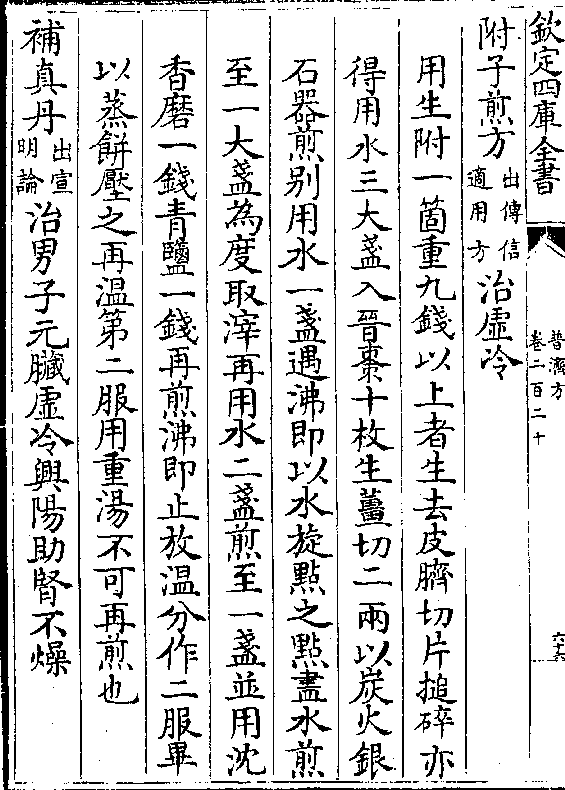 欽定四庫全書
普濟方
卷二百二十
六十六
附子煎方出傳信適用方治虛冷
用生附一箇重九錢以上者生去皮臍切片搥碎亦
得用水三大盞入晉棗十枚生薑切二兩以炭火銀
石器煎別用水一盞遇沸即以水旋㸃之㸃盡水煎
至一大盞為度取滓再用水二盞煎至一盞並用沈
香磨一錢青鹽一錢再煎沸即止放溫分作二服畢
以蒸餅壓之再溫第二服用重湯不可再煎也
補真丹出宣明論治男子元臟虛冷興陽助腎不燥